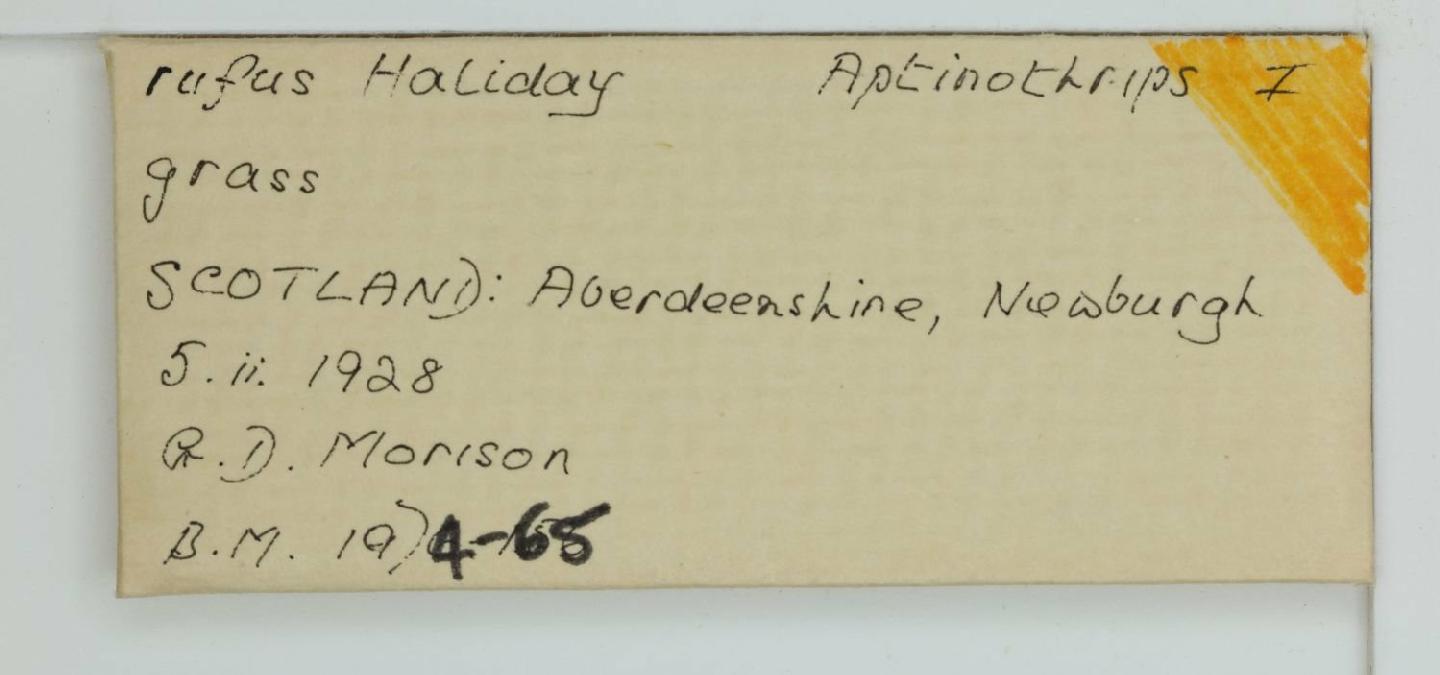 rufus Haliday Aptinothrips I
grass
SCOTLAND: Aberdeenshire, Newburgh
5.ii. 1928
G.D. Morison
B.M. 1974-65